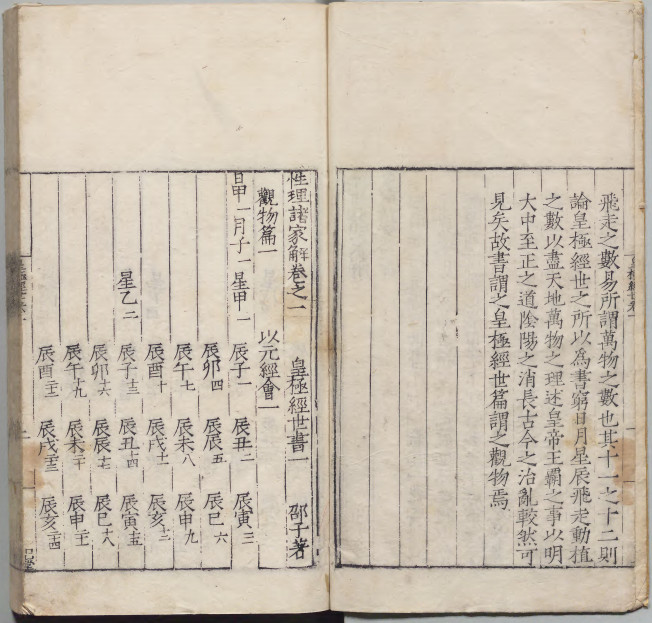 飛走之數易所謂萬物之數也其十一之十二則
論皇極經世之所以為書窮日月星辰飛走動植
之數以盡天地萬物之理述皇帝王霸之事以明
大中至正之道陰陽之消長古今之治亂較然可
見矣故書謂之皇極經世篇謂之觀物焉
性理諸家解卷之一 皇極經世書一 邵子著
觀物篇一 以元經會一
日甲一 月子一 星甲一 辰子一 辰丑二 辰寅三
辰卯四 辰辰五 辰巳六
辰午七 辰未八 辰申九
辰酉十 辰戌十一 辰亥十二
星乙二 辰子十三 辰丑十四 辰寅十五
辰卯十六 辰辰十七 辰巳十八
辰午十九 辰未二十 辰申二十一
辰酉二十二 辰戌二十三 辰亥二十四